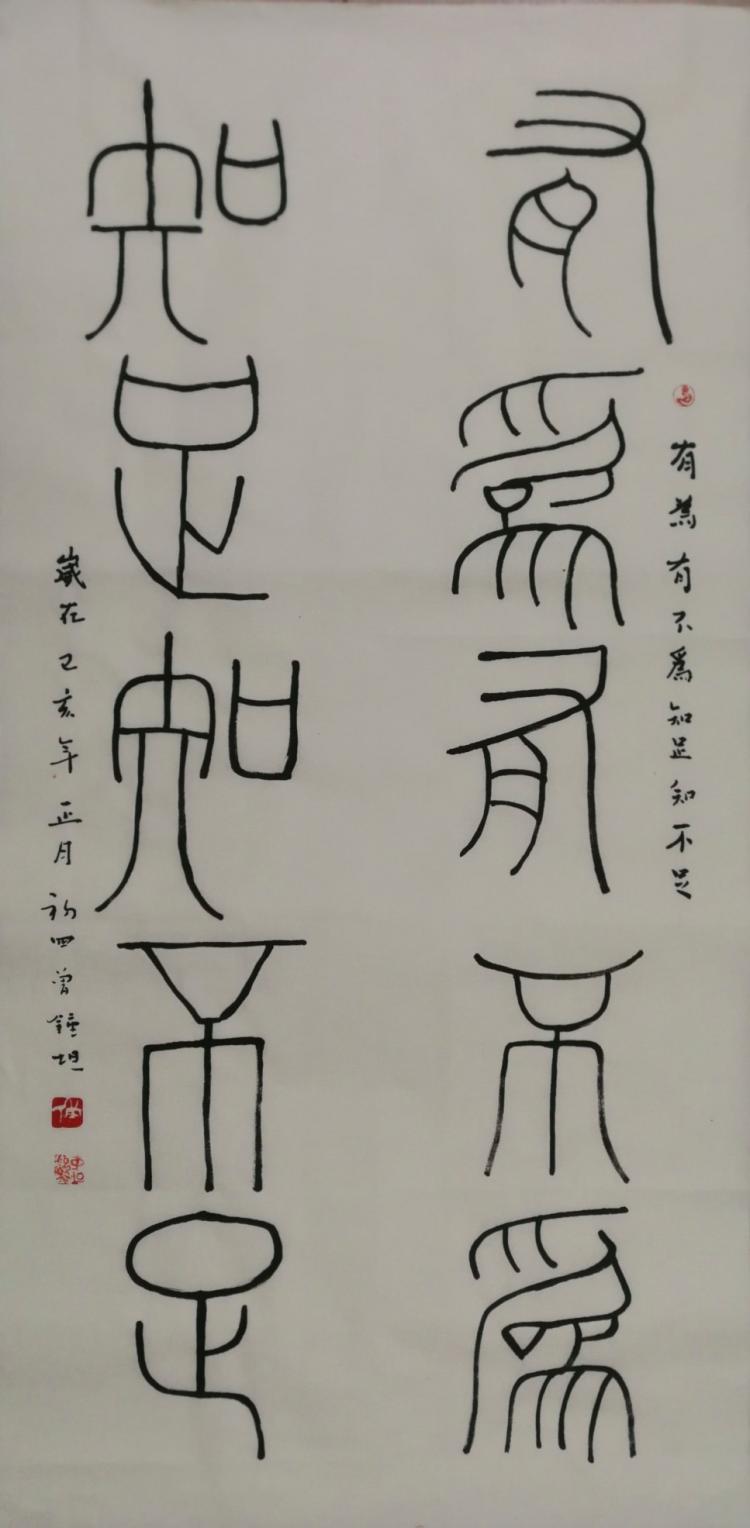 有为有不为
知足知不足
有为有不為知足知不足
歲在己亥年正月初四曾鐘坦